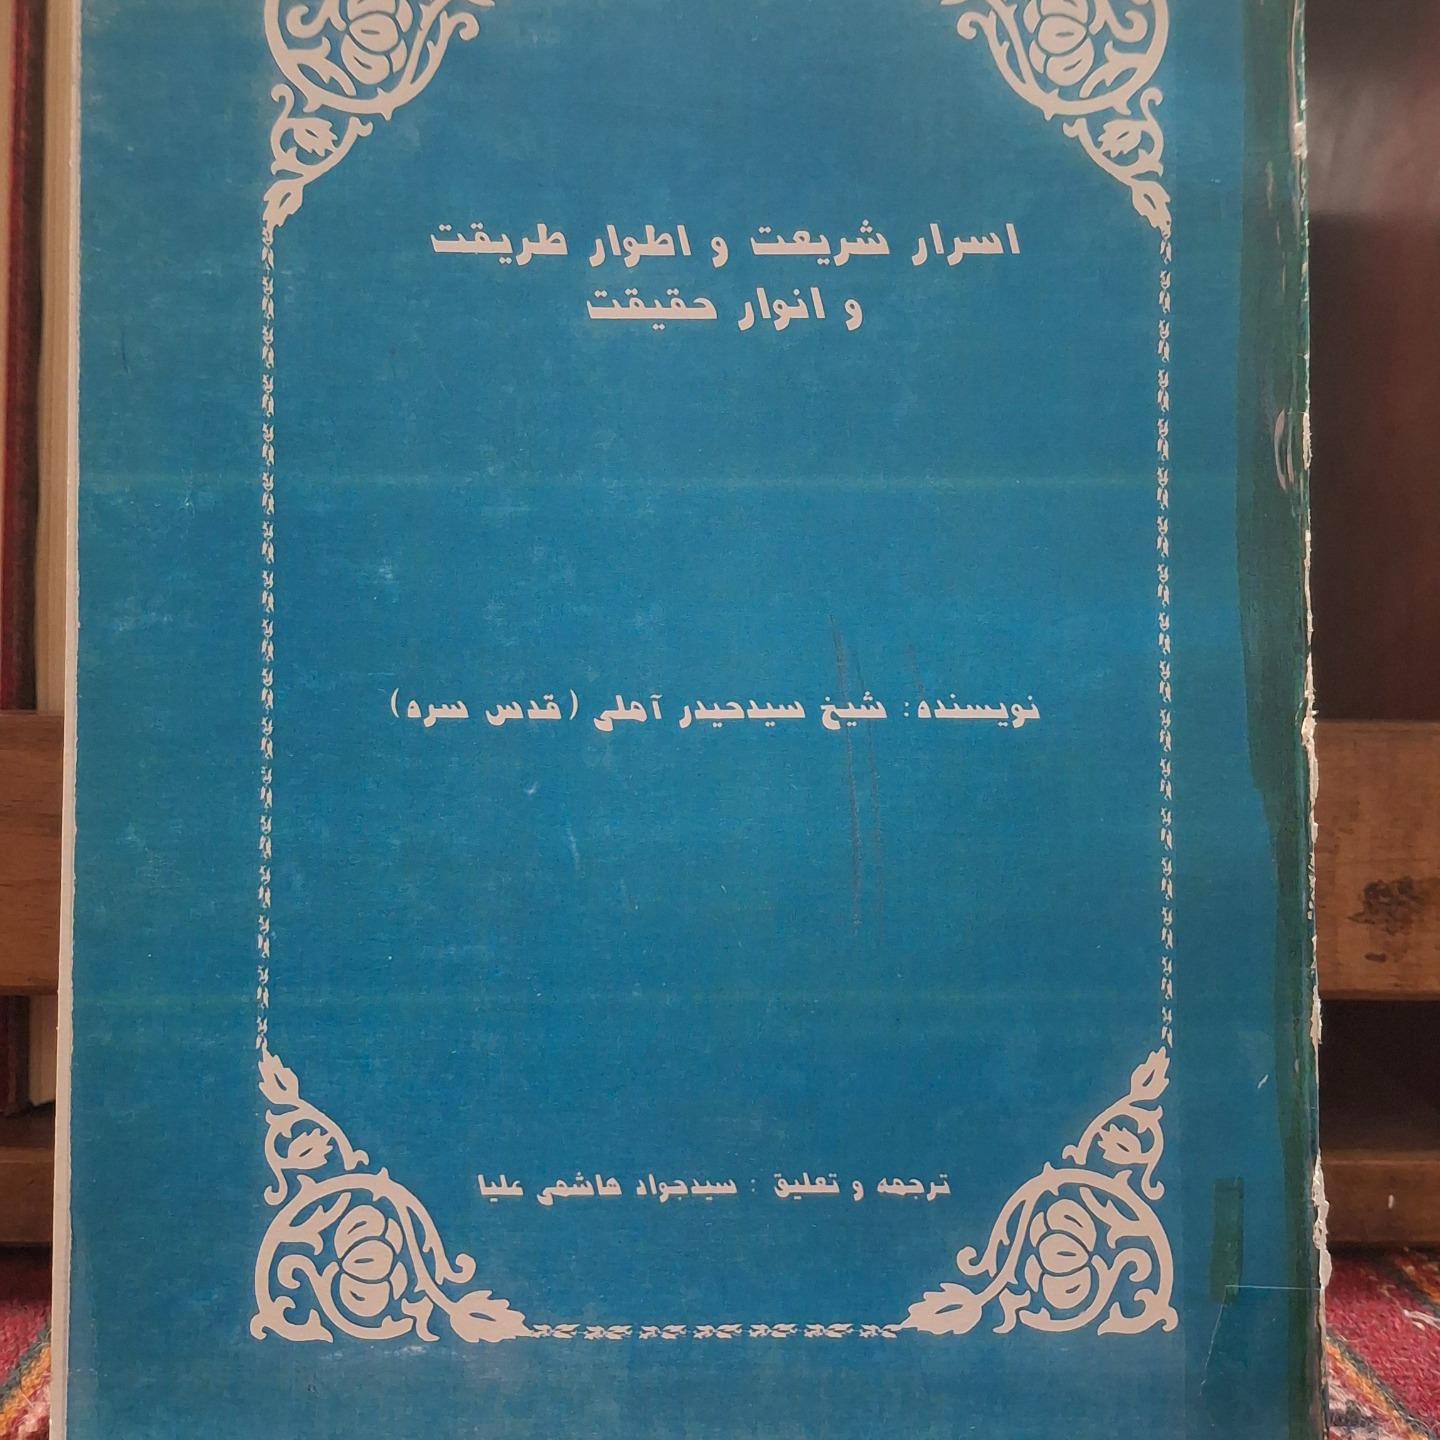 اسرار شریعت و اطوار طریقت
و انوار حقیقت
نویسنده: شیخ سیدحیدر آملی (قدس سره)
ترجمه و تعلیق : سیدجواد هاشمی علیا